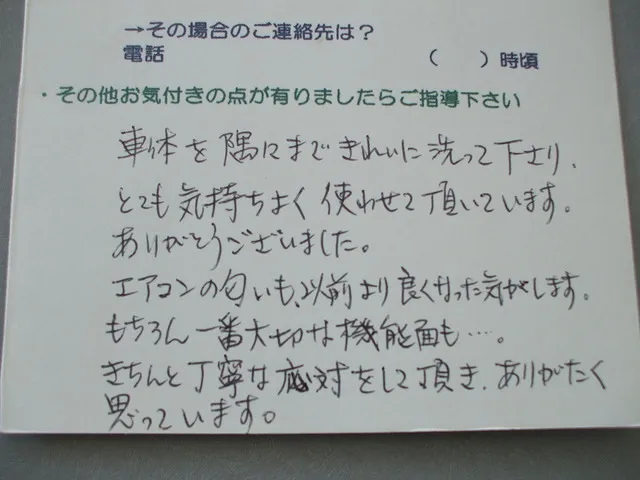 →その場合のご連絡先は？
電話 （　　）時頃
・その他お気付きの点が有りましたらご指導下さい
車体を隅にまできれいに洗って下さり、
とても気持ちよく使わせて頂いています。
ありがとうございました。
エアコンの匂いも、以前より良くなった気がします。
もちろん一番大切な機能面も…。
きちんと丁寧な応対をして頂き、ありがたく
思っています。